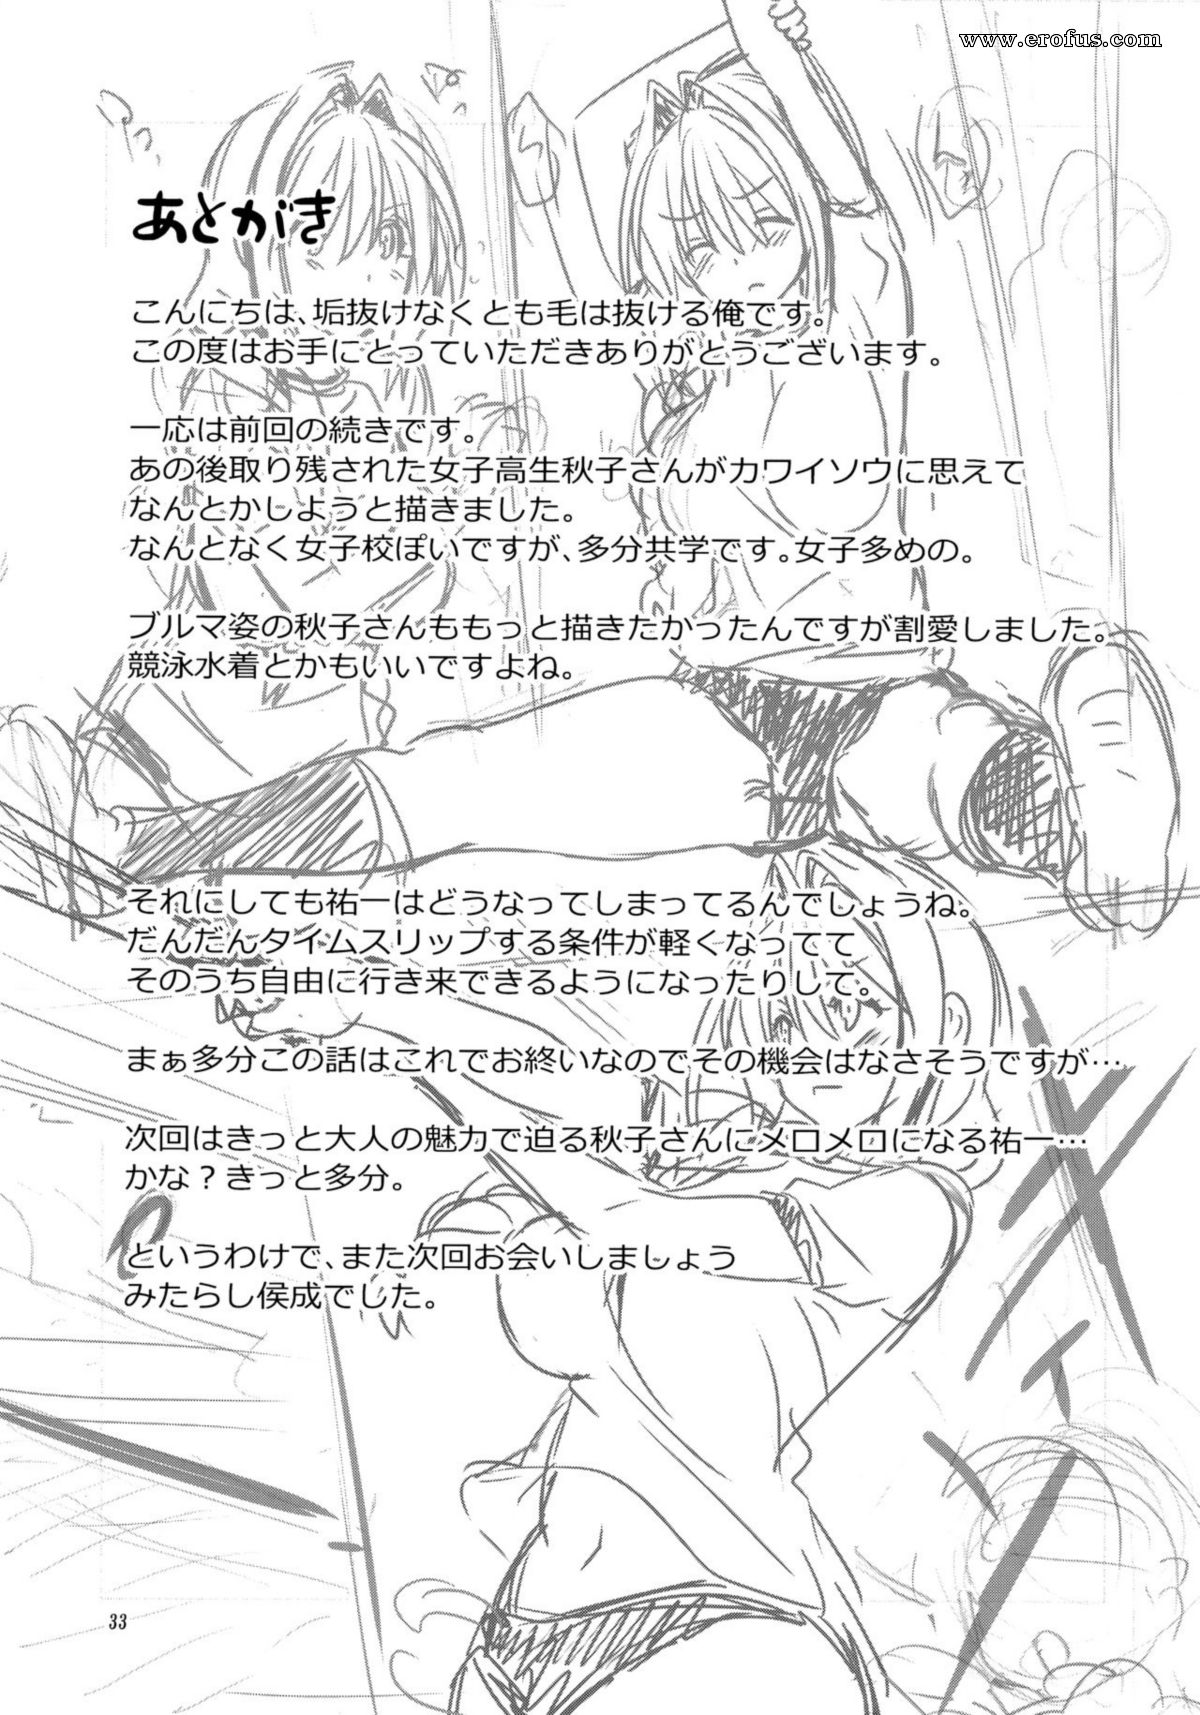 www.erofus.com
あとがき
こんにちは、垢抜けなくとも毛は抜ける俺です。
この度はお手にとっていただきありがとうございます。
一応は前回の続きです。
あの後取り残された女子高生秋子さんがカワイソウに思えて
なんとかしようと描きました。
なんとなく女子校ぽいですが、多分共学です。女子多めの。
ブルマ姿の秋子さんももっと描きたかったんですが割愛しました。
競泳水着とかもいいですよね。
それにしても祐一はどうなってしまってるんでしょうね。
だんだんタイムスリップする条件が軽くなってて
そのうち自由に行き来できるようになったりして。
まぁ多分この話はこれでお終いなのでその機会はなさそうですが…
次回はきっと大人の魅力で迫る秋子さんにメロメロになる祐一…
かな？きっと多分。
というわけで、また次回お会いしましょう
みたらし侯成でした。
33